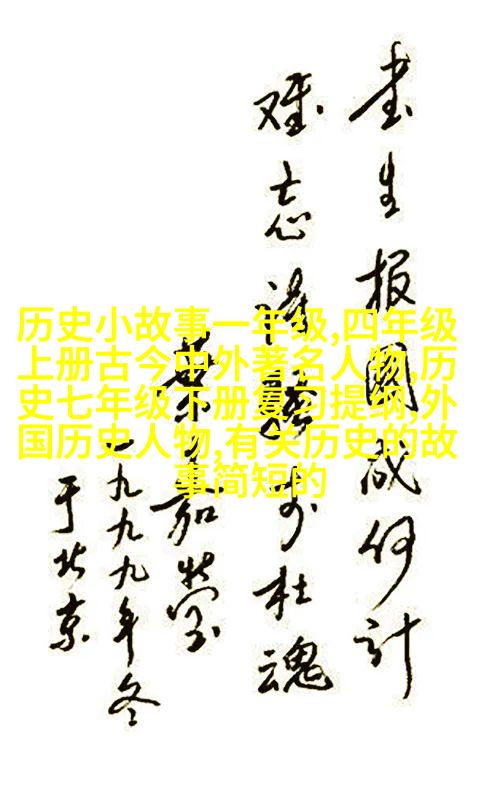 历史小故事一年级,四年级
上册古今中外著名人物,历
史七年级下册复习提纲,外
国历史人物,有关历史的故
事简短的
书生报國成何计
难忘诗骚李杜魂
葉嘉莹
一九九九年冬
于北京